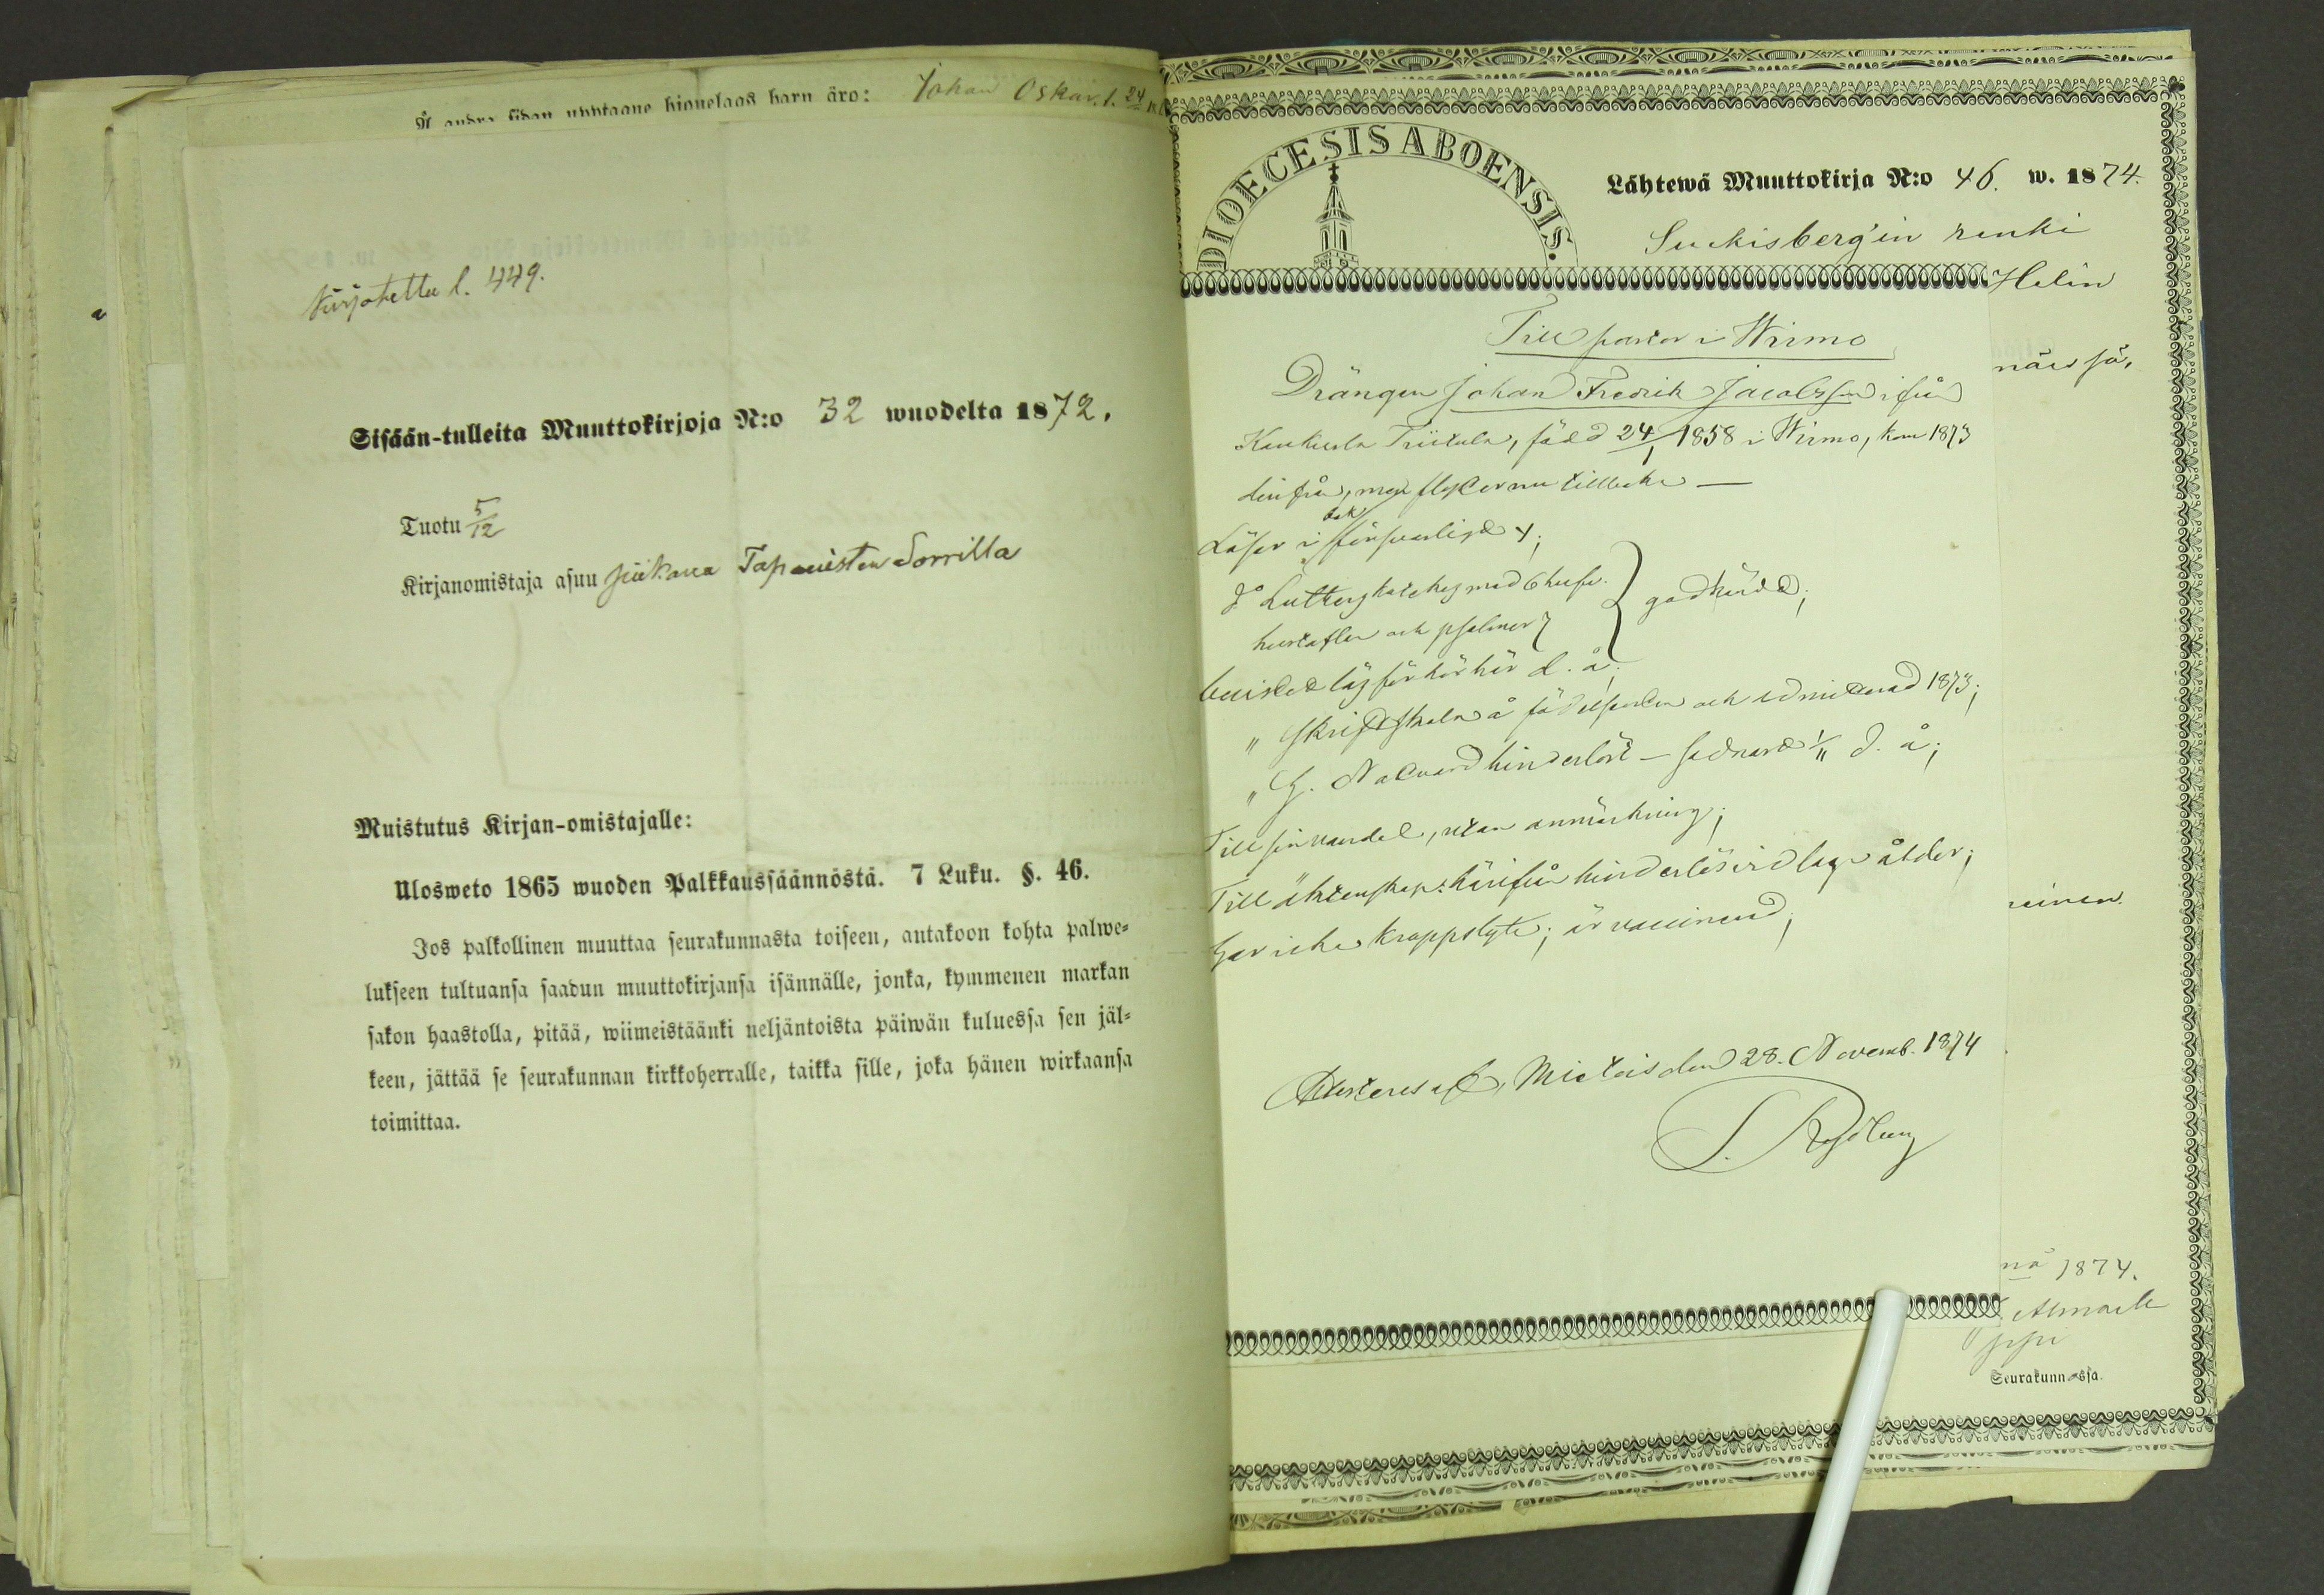 Å andra sidan upptagne hionelags barn äro: Johan Oskar. f. 24
Kirjotettu l. 449.
Sisään-tulleita Muuttokirjoja N:o 32 wuodelta 1872.
Tuotu 5/12
Kirjanomistaja asuu piikana Tapanisten Sorrilla
Muistutus Kirjan-omistajalle:
Ulosweto 1865 wuoden Palkkaussäännöstä. 7 Luku. §. 46.
Jos palkollinen muuttaa seurakunnasta toiseen, antakoon kohta palwe=
lukseen tultuansa saadun muuttokirjansa isännälle, jonka, kymmenen markan
sakon haastolla, pitää, wiimeistäänki neljäntoista päiwän kuluessa sen jäl=
keen, jättää se seurakunnan kirkkoherralle, taikka sille, joka hänen wirkaansa
toimittaa.
DIOECESIS ABOENSIS.
Lähtewä Muuttokirja N:o 46. w. 1874.
Suckisberg'in renki
Helin
Till pastor i Wirmo
Drängen Johan Fredrik Jacobsson ifrån
Kaukurla Triitala, född 24/1 1858 i Wirmo, kom 1873
dirifrån, men flyttar nu tillbaka —
Läser i bok försvarligt;
d:o Luthers kateches med
hustaflan och psalmer } godkändt;
bevistat läsförhör här d. å.;
" skriftskola å födelseorten och admitterad 1873;
" H. Nattvard hinderlöst — sednast 1/11 d. å;
Till sin vandel, utan anmärkning;
Till äktenskap härifrån hinderlös vid laga ålder;
Har icke kroppslyte; är vaccinerad;
Attesteras af, Mietois den 28. Novemb. 1874
nä 1874.
Seurakunnassa.